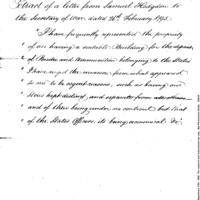 Extract of a letter from Samuel Hodgdon to
the Secretary of War dated 26th February 1793.
I have frequently represented the propriety
of our having a suitable Building for the deposit,
of Powder and Ammunition belonging to the States
I have urged the measure, from what appeared
to me to be urgent reasons, such as having our
Stores kept distinct, and separate from all others
and of their being under no control but that
of the States Officers, its being economical &c.